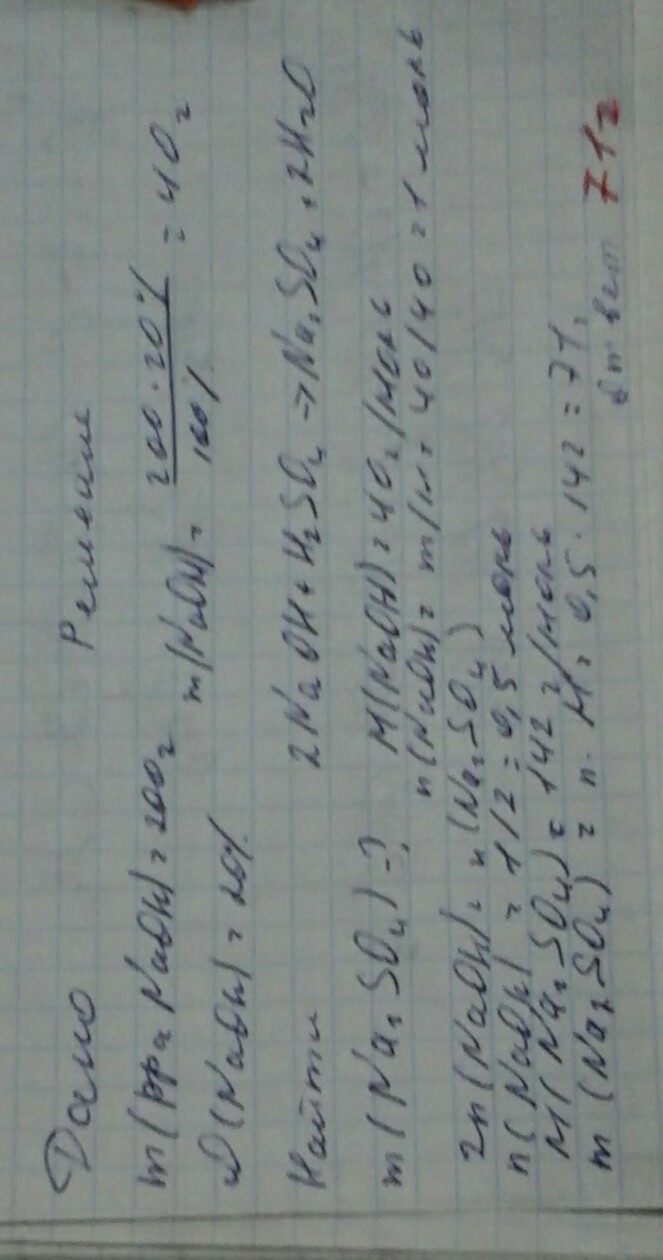 Дано
Решение
m(рра NaOH)=200г
m(NaOH)= 200·20% / 100% = 40г
ω(NaOH)=20%
Найти
2NaOH+H₂SO₄→Na₂SO₄+2H₂O
m(Na₂SO₄)-?
M(NaOH)=40г/моль
n(NaOH)= m/M= 40/40=1 моль
2n(NaOH)=n(Na₂SO₄)
n(NaOH) = 1/2=0,5 моль
M(Na₂SO₄)=142 г/моль
m(Na₂SO₄) = n·M= 0,5·142=71г
Ответ 71г